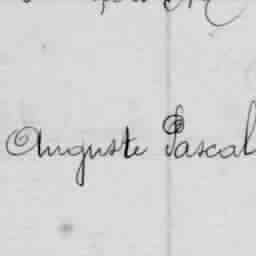 Auguste Pascal